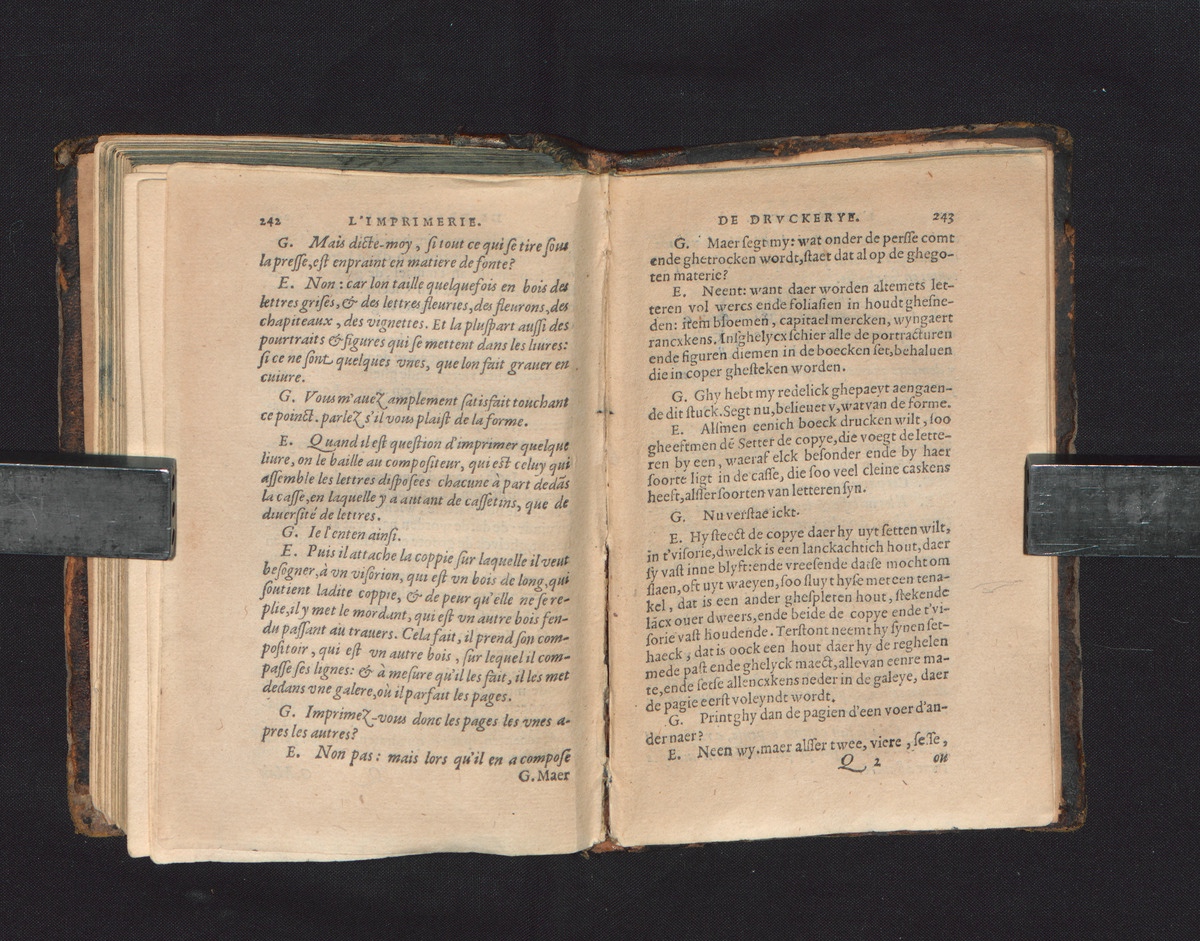 242 L'IMPRIMERIE.
G. Mais dicte-moy, si tout ce qui se tire sous
la presse, est enpraint en matiere de fonte?
E. Non: car lon taille quelquefois en bois des
lettres grises, & des lettres fleuries, des fleurons, des
chapiteaux, des vignettes. Et la pluspart aussi des
pourtraits & figures qui se mettent dans les liures:
si ce ne sont quelques vnes, que lon fait grauer en
cuiure.
G. Vous m'auez amplement satisfait touchant
ce poinct. parlez s'il vous plaist de la forme.
E. Quand il est question d'imprimer quelque
liure, on le baille au compositeur, qui est celuy qui
assemble les lettres disposees chacune à part dedās
la casse, en laquelle y a autant de cassetins, que de
diuersité de lettres.
G. Ie l'enten ainsi.
E. Puis il attache la coppie sur laquelle il veut
besogner, à vn visorion, qui est vn bois de long, qui
soutient ladite coppie, & de peur qu'elle ne se re-
plie, il y met le mordant, qui est vn autre bois fen-
du passant au trauers. Cela fait, il prend son com-
positoir, qui est vn autre bois, sur lequel il com-
passe ses lignes: & à mesure qu'il les fait, il les met
dedans vne galere, où il parfait les pages.
G. Imprimez-vous donc les pages les vnes a-
pres les autres?
E. Non pas: mais lors qu'il en a compose
G. Maer
DE DRVCKERYE. 243
G. Maer segt my: wat onder de persse comt
ende ghetrocken wordt, staet dat al op de ghego-
ten materie?
E. Neent: want daer worden altemets let-
teren vol wercs ende foliasien in houdt ghesne-
den: item bloemen, capitael mercken, wyngaert
rancxkens. Insghelycx schier alle de portracturen
ende figuren diemen in de boecken set, behaluen
die in coper ghesteken worden.
G. Ghy hebt my redelick ghepaeyt aengaen-
de dit stuck. Segt nu, belieuet v, wat van de forme.
E. Alsmen eenich boeck drucken wilt, soo
gheeftmen dē Setter de copye, die voegt de lette-
ren by een, waeraf elck besonder ende by haer
soorte ligt in de casse, die soo veel cleine caskens
heeft, alsser soorten van letteren syn.
G. Nu verstae ickt.
E. Hy steect de copye daer hy uyt setten wilt,
in t'visorie, dwelck is een lanckachtich hout, daer
sy vast inne blyft: ende vreesende datse mocht om
slaen, oft uyt waeyen, soo sluyt hyse met een tena-
kel, dat is een ander ghespleten hout, stekende
lācx ouer dweers, ende beide de copye ende t'vi-
sorie vast houdende. Terstont neemt hy synen set-
haeck, dat is oock een hout daer hy de reghelen
mede past ende ghelyck maect, alle van eenre ma-
te, ende setse allencxkens neder in de galeye, daer
de pagie eerst voleyndt wordt.
G. Print ghy dan de pagien d'een voer d'an-
der naer?
E. Neen wy. maer alsser twee, viere, sesse,
Q 2 on